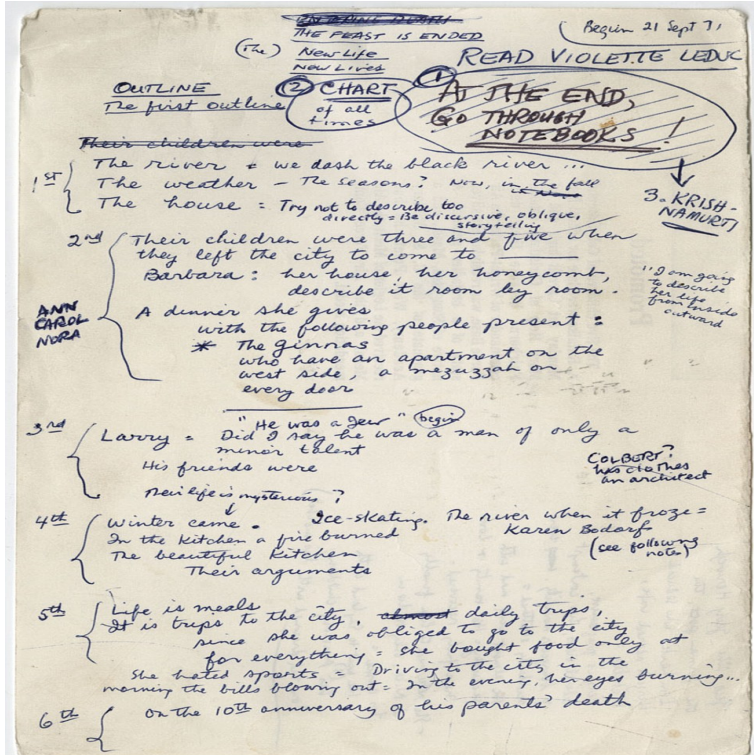 THE FEAST IS ENDED
(The) New Life
New Lives
Begun 21 Sept 71
READ VIOLETTE LEDUC
OUTLINE
The first outline
② CHART
of all
times
①
AT THE END,
GO THROUGH
NOTEBOOKS!
3. KRISH-
NAMURTI
Their children were
1st
The river = we dash the black river ...
The weather – The seasons? Now, in the fall
The house = Try not to describe too
directly = Be discursive, oblique,
storytelling
2nd
Their children were three and five when
they left the city to come to
Barbara : her house, her honeycomb,
describe it room by room.
"I am going
to describe
her life
from inside
outward
ANN
CAROL
NORA
A dinner she gives
with the following people present :
* The ginnas
who have an apartment on the
west side, a mezuzzah on
every door
3rd
"He was a Jew" begin
Larry = Did I say he was a man of only a
minor talent
His friends were
COLBERT?
has clothes
an architect
Their life is mysterious ?
4th
Winter came. Ice-skating. The river when it froze =
In the kitchen a fire burned Karen Bodorf
The beautiful kitchen
(see following
notes)
Their arguments
5th
Life is meals
It is trips to the city, almost daily trips,
since she was obliged to go to the city
for everything = she bought food only at
She hated sports = Driving to the city in the
morning the bills blowing out = In the evening, her eyes burning...
6th
On the 10th anniversary of his parents' death